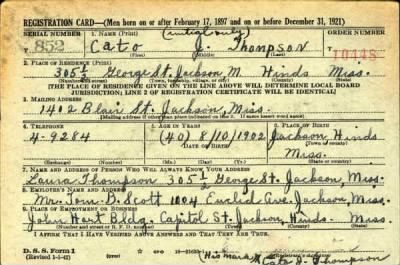 REGISTRATION CARD—(Men born on or after February 17, 1897 and on or before December 31, 1921)
SERIAL NUMBER 1. NAME (Print) (initial only) ORDER NUMBER
852 Cato J. Thompson 10448
2. PLACE OF RESIDENCE (Print)
305½ George St. Jackson M. Hinds Miss.
[THE PLACE OF RESIDENCE GIVEN ON THE LINE ABOVE WILL DETERMINE LOCAL BOARD
JURISDICTION; LINE 2 OF REGISTRATION CERTIFICATE WILL BE IDENTICAL]
3. MAILING ADDRESS
1402 Blair St. Jackson, Miss.
[Mailing address if other than place indicated on line 2. If same insert word same]
4. TELEPHONE 5. AGE IN YEARS 6. PLACE OF BIRTH
4-9284 (40) 8/10/1902 Jackson, Hinds
DATE OF BIRTH Miss.
(Exchange) (Number) (Mo.) (Day) (Yr.) (Town or county) (State or country)
7. NAME AND ADDRESS OF PERSON WHO WILL ALWAYS KNOW YOUR ADDRESS
Laura Thompson 305½ George St. Jackson Miss.
8. EMPLOYER'S NAME AND ADDRESS
Mr. Tom B. Scott 1004 Euclid Ave. Jackson Miss.
9. PLACE OF EMPLOYMENT OR BUSINESS
John Hart Bldg. Capitol St. Jackson, Hinds, Miss.
(Number and street or R. F. D. number) (Town) (County) (State)
I AFFIRM THAT I HAVE VERIFIED ABOVE ANSWERS AND THAT THEY ARE TRUE.
D. S. S. Form 1
(Revised 1-1-42) (His mark) X Cato J. Thompson